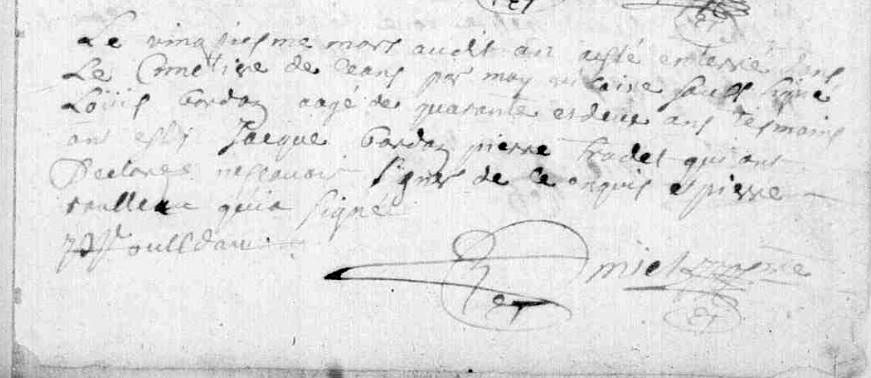 Le vingtiesme mars audit an a esté enterré dans
Le Cimetiere de Ceans par moy vicaire soub signé
Louis bordag aagé de quarante et deux ans tesmoins
ont esté Jacque bordag pierre tradet qui ont
Declares ne scavoir signer de ce enquis et pierre
roulleau qui a signé
roulleau